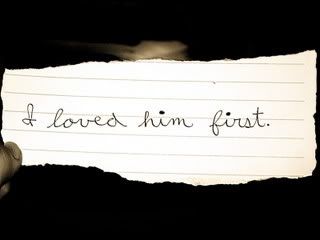 I loved him first.